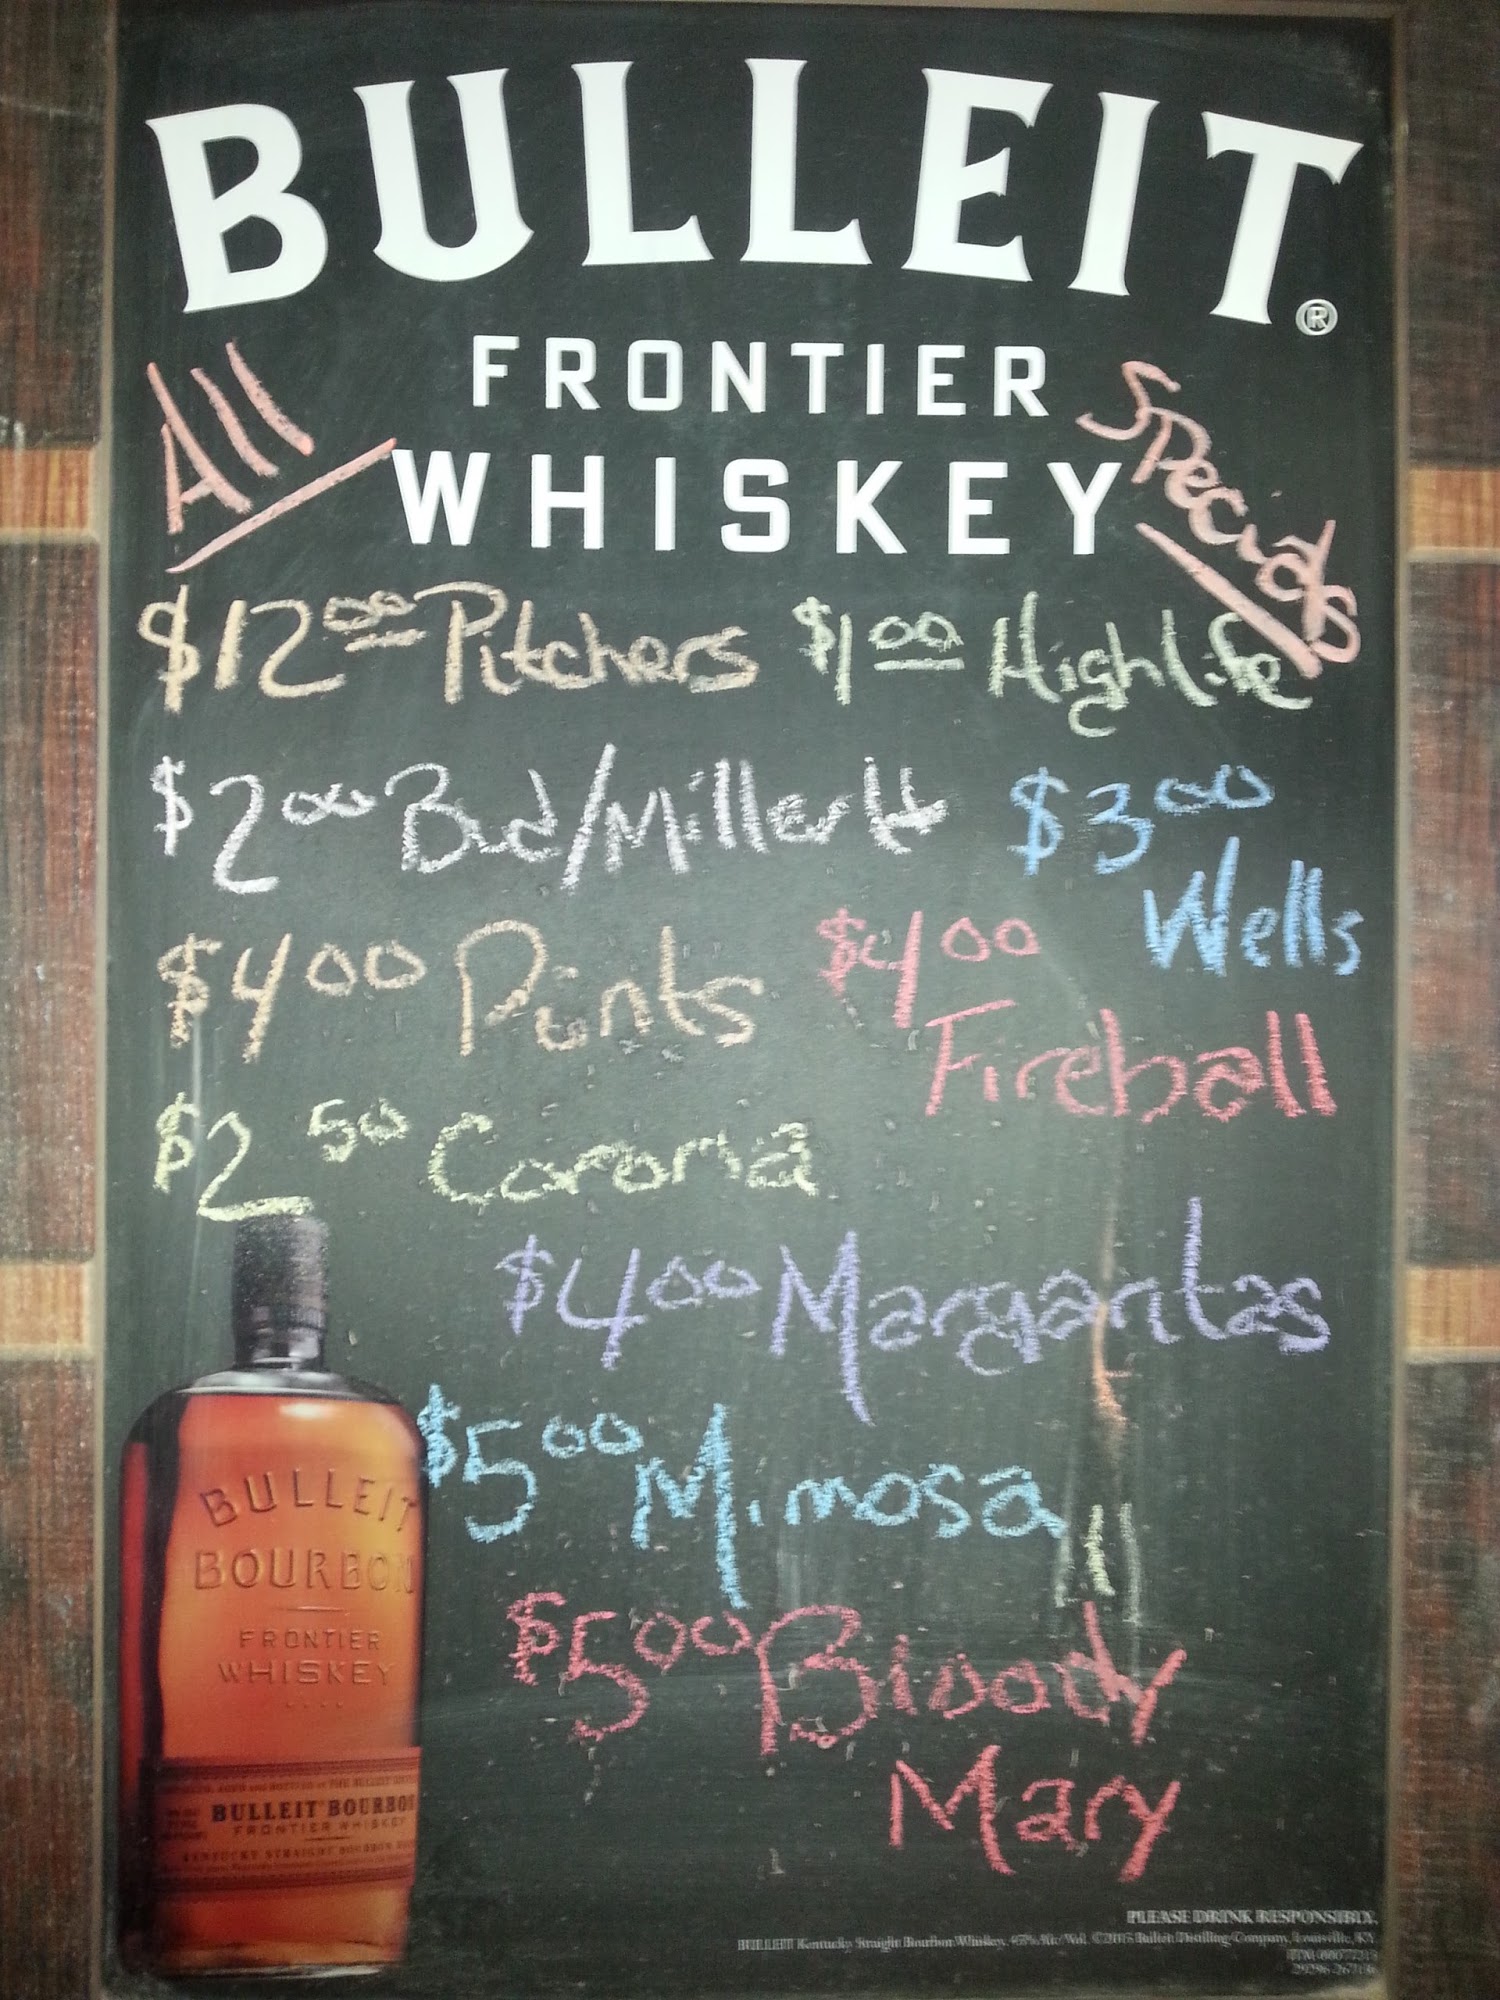 BULLEIT®
FRONTIER
WHISKEY
All
Specials
$12.00 Pitchers
$1.00 High life
$2.00 Bud/Miller Lt
$3.00
Wells
$4.00 Pints
$4.00
Fireball
$2.50 Corona
$4.00 Margaritas
$5.00 Mimosa
$5.00 Bloody
Mary
BULLEIT
BOURBON
FRONTIER
WHISKEY
BULLEIT BOURBON
FRONTIER WHISKEY
KENTUCKY STRAIGHT BOURBON
PLEASE DRINK RESPONSIBLY.
BULLEIT Kentucky Straight Bourbon Whiskey. 45% Alc/Vol. Bulleit Distilling Company, Louisville, KY.